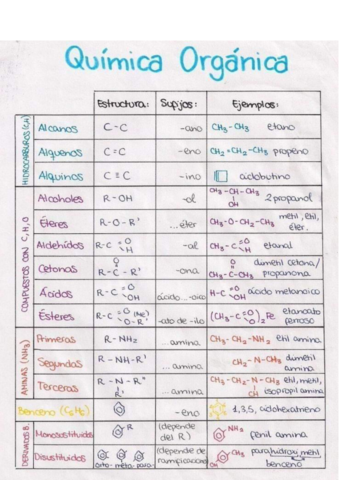 Química Orgánica
Estructura: Sufijos: Ejemplos:
HIDROCARBUROS (C,H)
Alcanos C-C -ano CH3-CH3 etano
Alquenos C=C -eno CH2=CH2-CH3 propeno
Alquinos C≡C -ino ciclobutino
COMPUESTOS CON C, H, O
Alcoholes R-OH -ol CH3-CH-CH3 OH 2 propanol
Éteres R-O-R' ...éter CH3-O-CH2-CH3 metil, etil, éter.
Aldehídos R-C=O H -al CH3-C=O H etanal
Cetonas R-C-R' O -ona CH3-C-CH3 O dimetil cetona/ propanona
Ácidos R-C=O OH ácido...-oico H-C=O OH ácido metanoico
Ésteres R-C=O O-R' (Me) -ato de -ilo (CH3-C=O O)2 Fe etanoato ferroso
AMINAS (NH3)
Primeras R-NH2 ...amina CH3-CH2-NH2 etil amina
Segundas R-NH-R' ...amina CH3-N-CH3 dimetil amina
Terceras R-N-R' R'' ...amina CH3-CH2-N-CH3 etil, metil, isopropil amina
Benceno (C6H6) -eno 1,3,5, ciclohexatrieno
DERIVADOS B.
Monosustituidos R (depende del R) NH2 fenil amina
Disustituidos orto- meta- para- (depende de ramificación) CH3 OH parahidroxi metil benceno